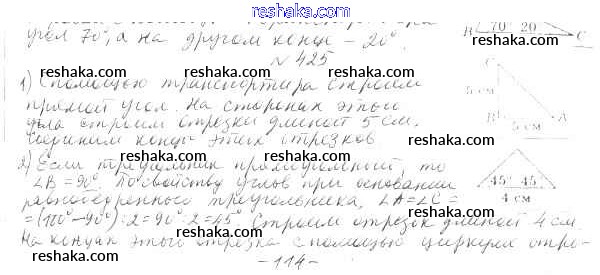 reshaka.com
угол 70°, а на другом конце – 20°.
B 70° 20° C
№ 425
reshaka.com reshaka.com reshaka.com
1) С помощью транспортира строим
прямой угол. На сторонах этого
reshaka.com reshaka.com reshaka.com
угла строим отрезки длиной 5 см.
Соединим концы этих отрезков.
C
5 см
B A
5 см
reshaka.com reshaka.com reshaka.com
2) Если треугольник прямоугольный, то
∠B = 90°. По свойству углов при основании
reshaka.com reshaka.com reshaka.com
равнобедренного треугольника, ∠A = ∠C =
= (180° – 90°) : 2 = 90° : 2 = 45°. Строим отрезок длиной 4 см.
45° 45°
4 см
reshaka.com reshaka.com reshaka.com
На концах этого отрезка с помощью циркуля отре-
– 114 –
reshaka.com